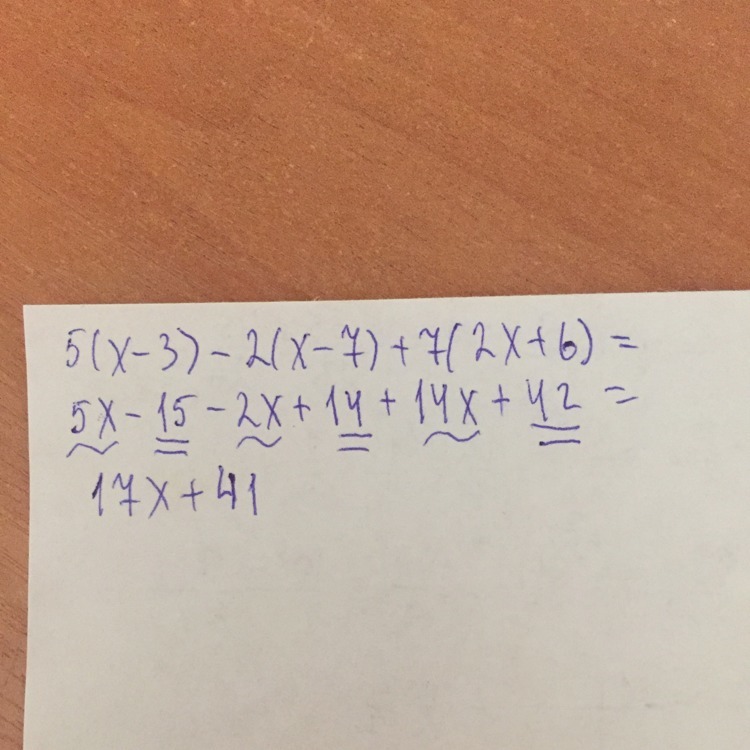 5(x-3)-2(x-7)+7(2x+6)=
5x-15-2x+14+14x+42=
17x+41